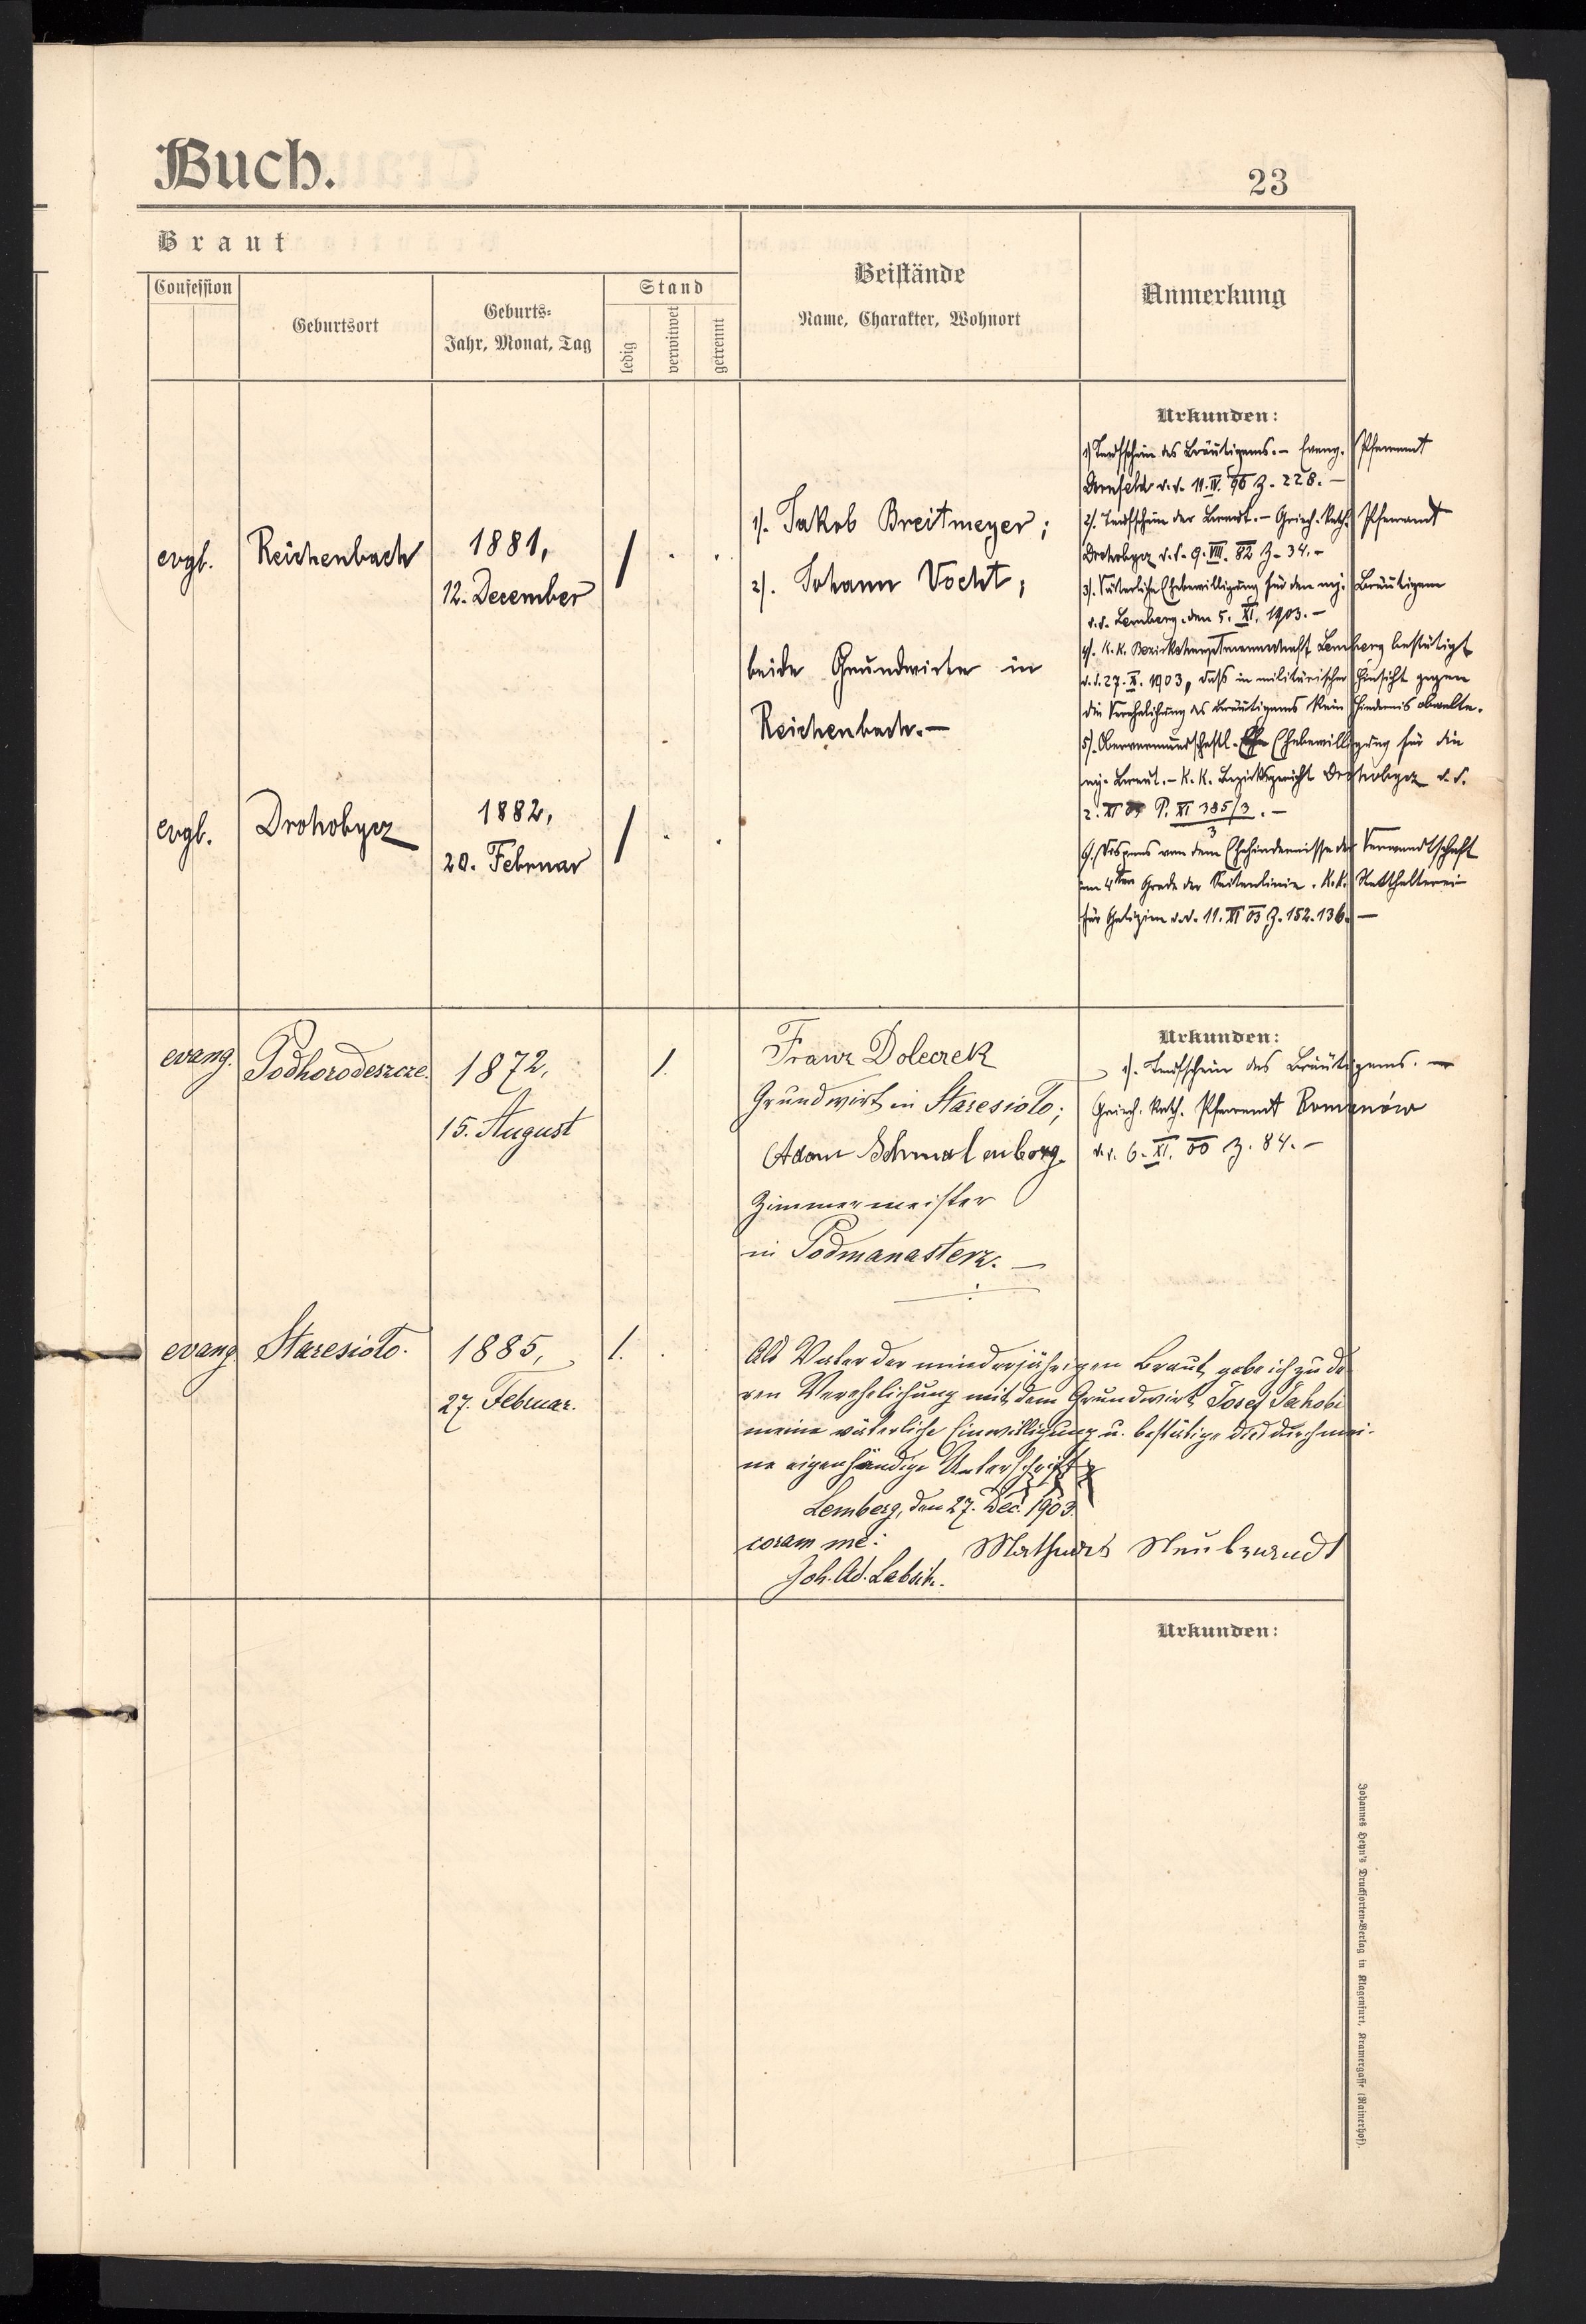 Buch.
23
Braut
Confession
Geburtsort
Geburts-
Jahr, Monat, Tag
Stand
ledig
verwitwet
getrennt
Beistände
Name, Charakter, Wohnort
Anmerkung
Urkunden:
evgl.
Reichenbach
1881,
12. December
1). Jakob Breitmeyer;
2). Johann Vocht;
beide Grundwirte in
Reichenbach.—
1) Taufschein des Bräutigams.— Evang. Pfarramt
Dornfeld d.d. 11. IV. 96 Z. 228.—
2). Taufschein der Braut.— Griech. Kath. Pfarramt
Drohobycz d.d. 9. VIII. 82 Z. 34.—
3). Väterliche Ehebewilligung für den mj. Bräutigam
d.d. Lemberg, den 5. XI. 1903.—
4). K. K. Bezirkshauptmannschaft Lemberg bestätigt
d.d. 27. X. 1903, daß in militärischer Hinsicht gegen
die Verehelichung des Bräutigams kein Hindernis obwalte.
5). Obervormundschaftl. Ehebewilligung für die
mj. Braut.— K. K. Bezirksgericht Drohobycz d.d.
2. XI 03 P. XI 385/3.—
3
6). Dispens von dem Ehehindernisse der Verwandtschaft
im 4ten Grade der Seitenlinie. K.k. Statthalterei
für Galizien d.d. 11. XI 03 Z. 152.136.—
evgl.
Drohobycz
1882,
20. Februar
evang.
Podhorodeszcze.
1872,
15. August
1.
Franz Doleczek
Grundwirt in Staresioło;
Adam Schmalenberg.
Zimmermeister
in Podmanasterz.—
Urkunden:
1). Taufschein des Bräutigams.—
Griech. Kath. Pfarramt Romanów
d.d. 6. XI. 00 Z. 84.—
evang.
Staresioło.
1885,
27. Februar.
1.
Als Vater der minderjährigen Braut gebe ich zu de-
ren Verehelichung mit dem Grundwirt Josef Jakobi
meine väterliche Einwilligung u. bestätige dies durch mei-
ne eigenhändige Unterschrift
Lemberg, den 27. Dec. 1903.
coram me:
Mathias Neubrandt
Joh. Ad.
Urkunden:
Johannes Heyn's Drucksorten-Verlag in Klagenfurt, Kramergasse (Rainerhof).